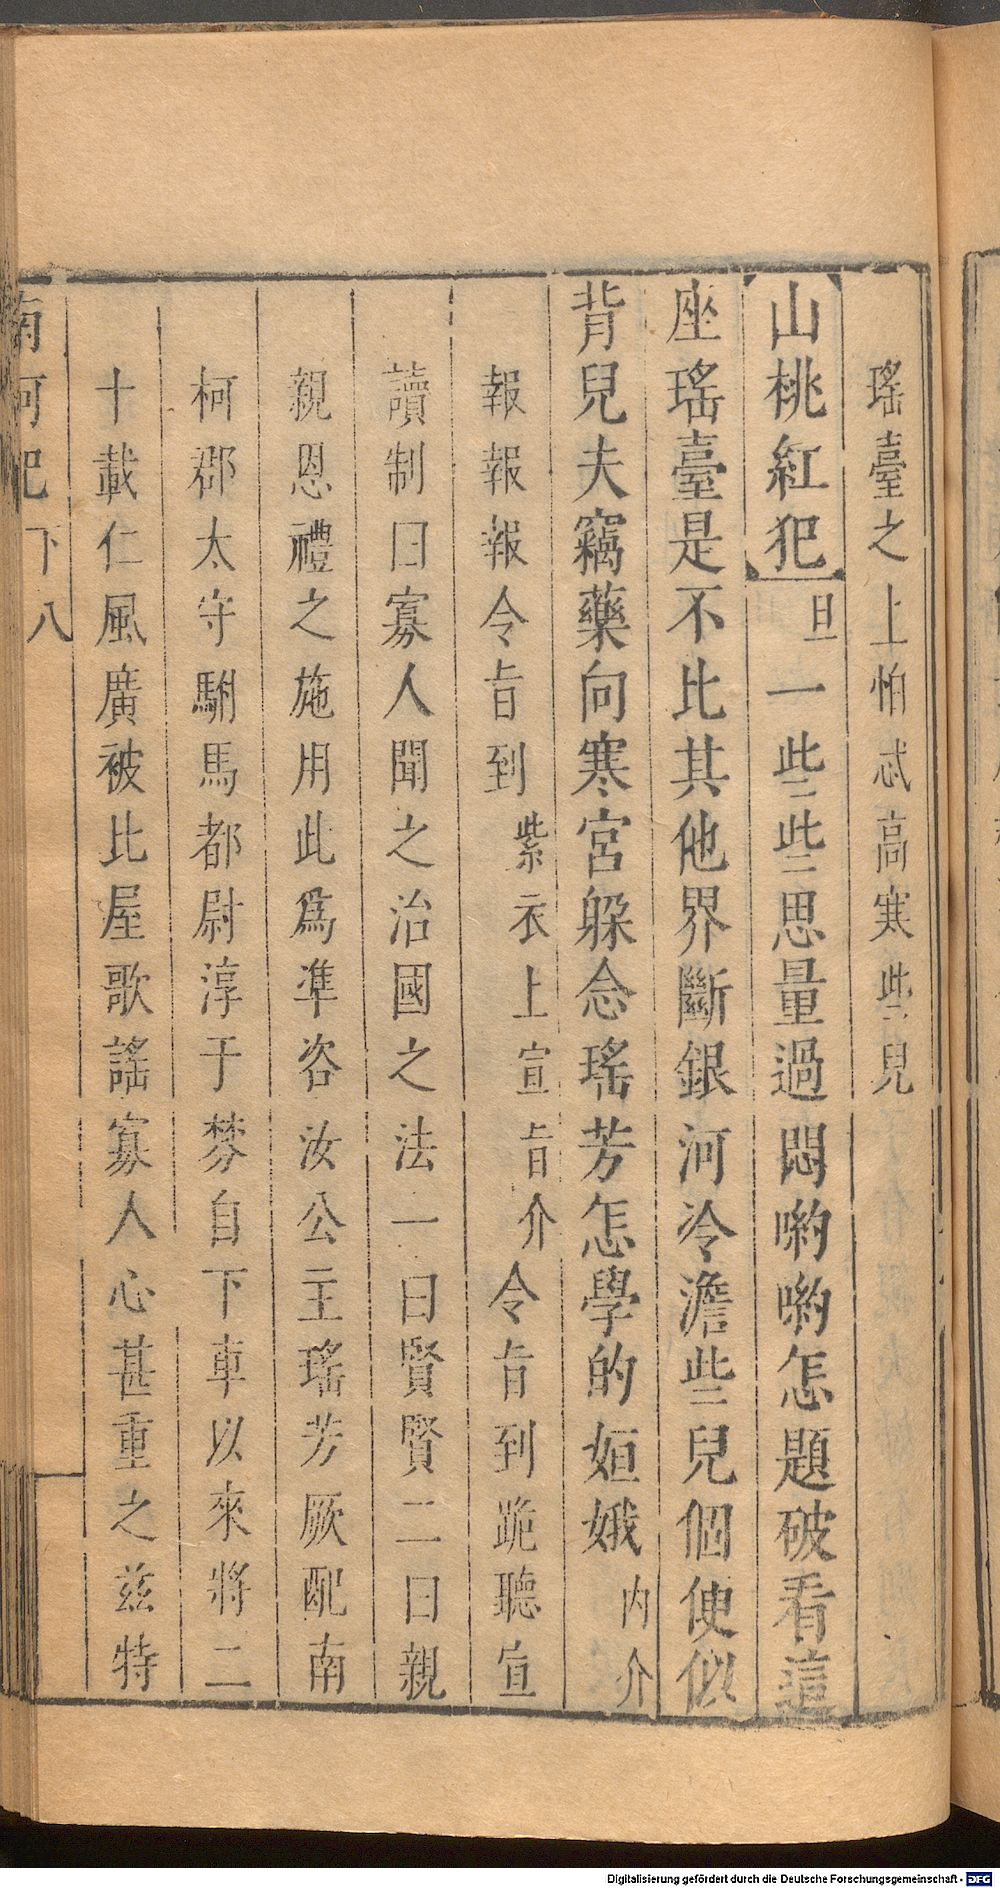 瑤臺之上怕忒高寒些兒
山桃紅犯旦一些些思量過悶喲喲怎題破看這
座瑤臺是不比其他界斷銀河冷澹些兒個便似
背兒夫竊藥向寒宮躲念瑤芳怎學的姮娥內介
報報報令旨到紫衣上宣旨介令旨到跪聽宣
讀制曰寡人聞之治國之法一曰賢賢二曰親
親恩禮之施用此爲準咨汝公主瑤芳厥配南
柯郡太守駙馬都尉淳于棼自下車以來將二
十載仁風廣被比屋歌謠寡人心甚重之茲特
南柯記下八
Digitalisierung gefördert durch die Deutsche Forschungsgemeinschaft - DFG